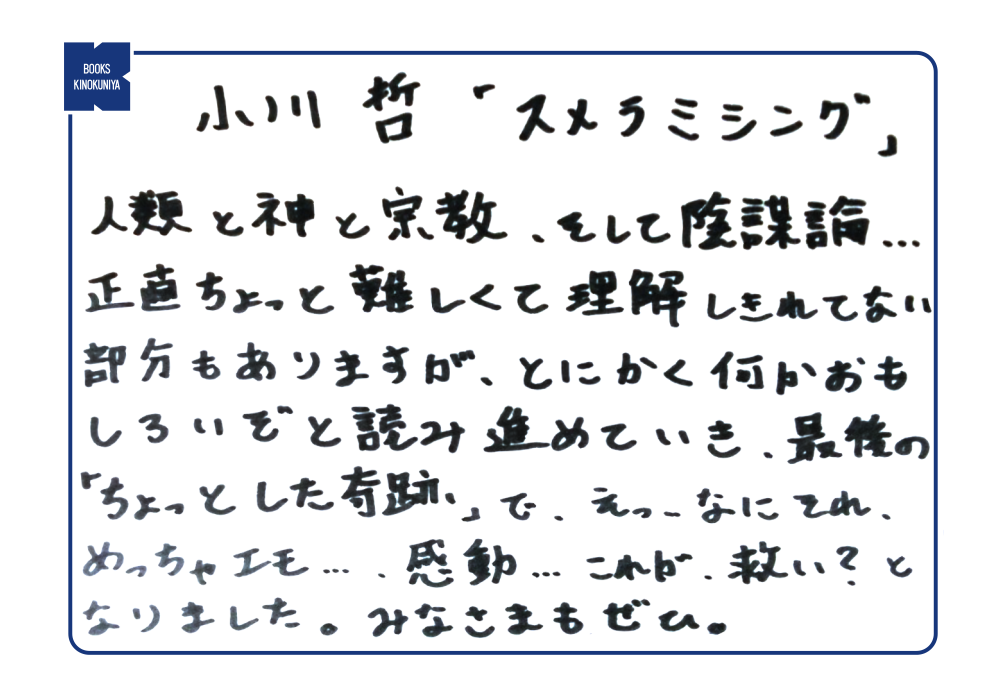 BOOKS
KINOKUNIYA
小川 哲 「スメラミシング」
人類と神と宗教、そして陰謀論…
正直ちょっと難しくて理解しきれてない
部分もありますが、とにかく何かおも
しろいぞと読み進めていき、最後の
「ちょっとした奇跡」で、えっ…なにそれ、
めっちゃエモ…、感動…これが、救い？と
なりました。みなさまもぜひ。